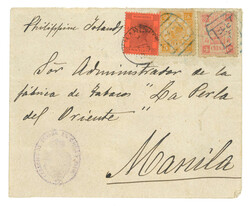 Philippine Islands
Sõr Administrador de la
fábrica de Tabacos "La Perla
del Oriente"
Manila